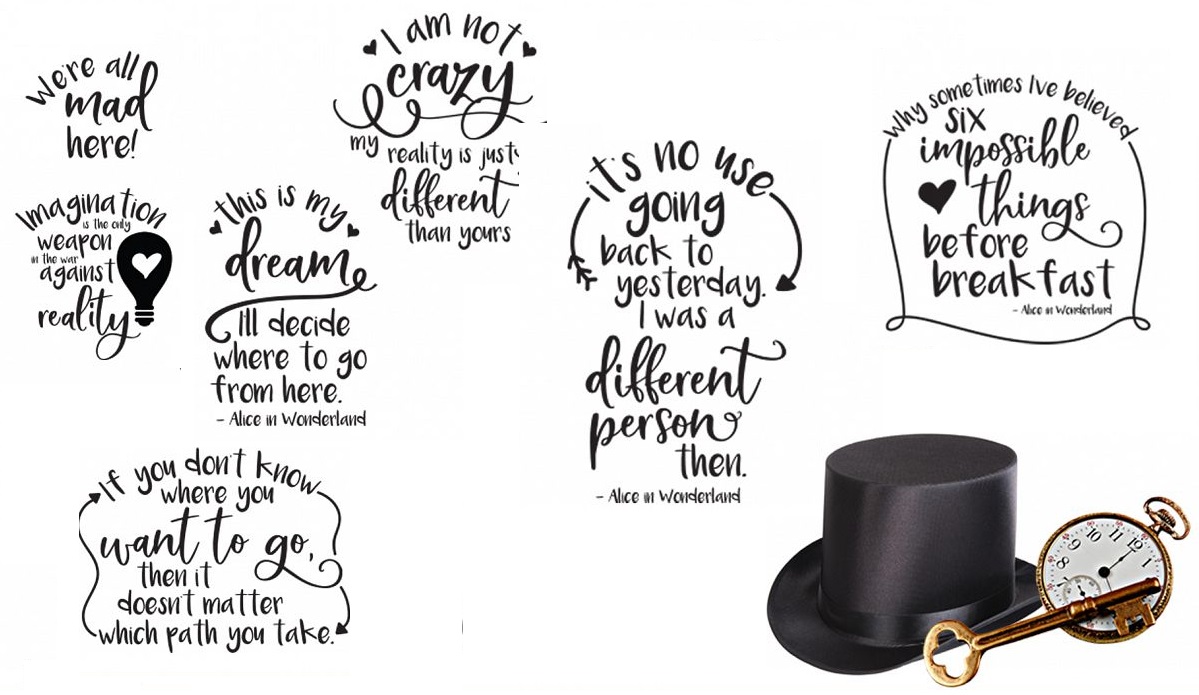 We're all
mad
here!
I am not
crazy
my reality is just
different
than yours
Imagination
is the only
weapon
in the war
against
reality
this is my
dream
I'll decide
where to go
from here.
- Alice in Wonderland
it's no use
going
back to
yesterday.
I was a
different
person
then.
- Alice in Wonderland
why sometimes I've believed
six
impossible
things
before
breakfast
- Alice in Wonderland
If you don't know
where you
want to go,
then it
doesn't matter
which path you take.
8
9
10
11
12
1